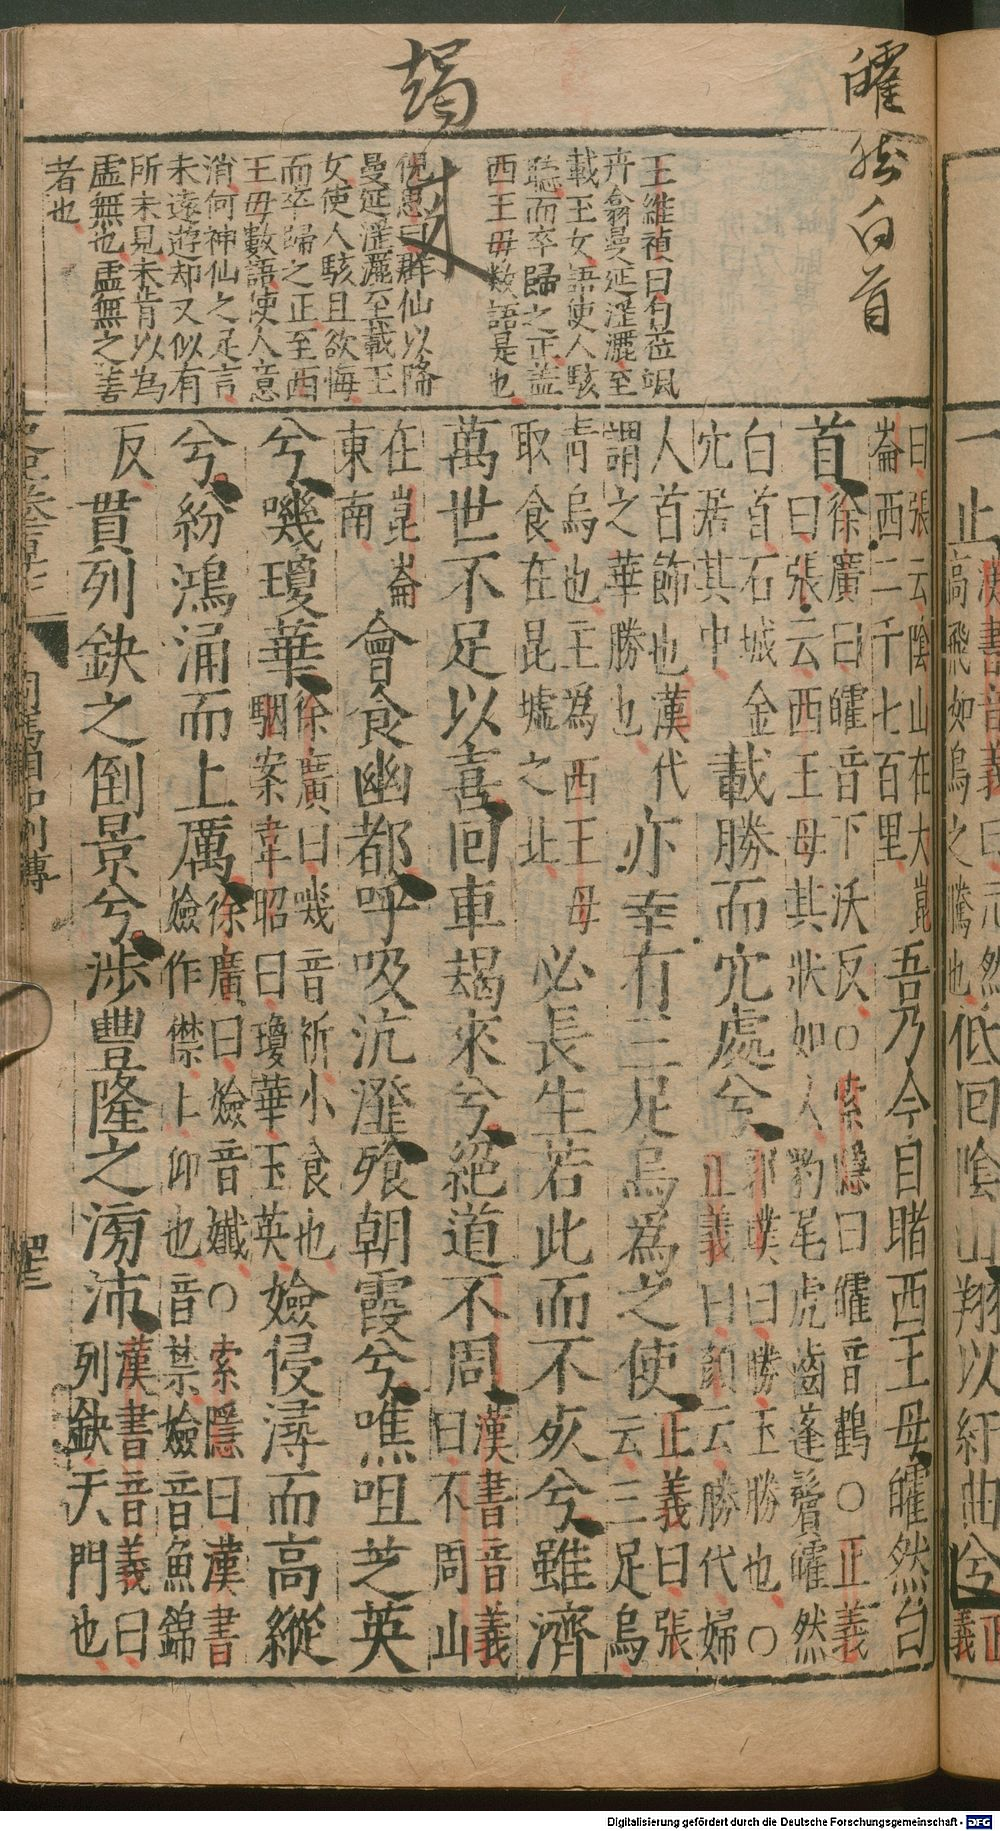 皬然白首
朅
來
王維禎曰勿莅颯
卉翕曼延淫灑至
載玉女語使人駭
聽而卒歸之正蓋
西王母數語是也
倪思曰群仙以降
曼延淫灑至載玉
女使人駭且欲悔
而卒歸之正至西
王母數語使人意
消何神仙之足言
未遠遊却又似有
所未見未肯以為
虛無也虛無之善
者也
一止漢書音義曰𠆢然高飛如鳥之騰也低回陰山翔以紆曲兮正義
曰張云陰山在大崑崙西二千七百里吾乃今目睹西王母皬然白
首徐廣曰皬音下沃反○索隱曰皬音鶴○正義曰張云西王母其狀如人豹尾虎齒蓬鬢皬然
白首石城金穴居其中載勝而穴處兮郭璞曰勝玉勝也○正義曰顏云勝代婦
人首飾也漢代謂之華勝也亦幸有三足烏為之使正義曰張云三足烏
青烏也主為西王母取食在昆墟之北必長生若此而不死兮雖濟
萬世不足以喜回車朅來兮絕道不周漢書音義曰不周山
在崑崙東南會食幽都呼吸沆瀣飱朝霞兮噍咀芝英
兮嘰瓊華徐廣曰嘰音祈小食也駰案韋昭曰瓊華玉英嬐侵潯而高縱
兮紛鴻涌而上厲徐廣曰嬐音孅○索隱曰漢書嬐作傑上仰也音禁嬐音魚錦
反貫列缺之倒景兮涉豐隆之滂沛漢書音義曰列缺天門也
Digitalisierung gefördert durch die Deutsche Forschungsgemeinschaft - DFG